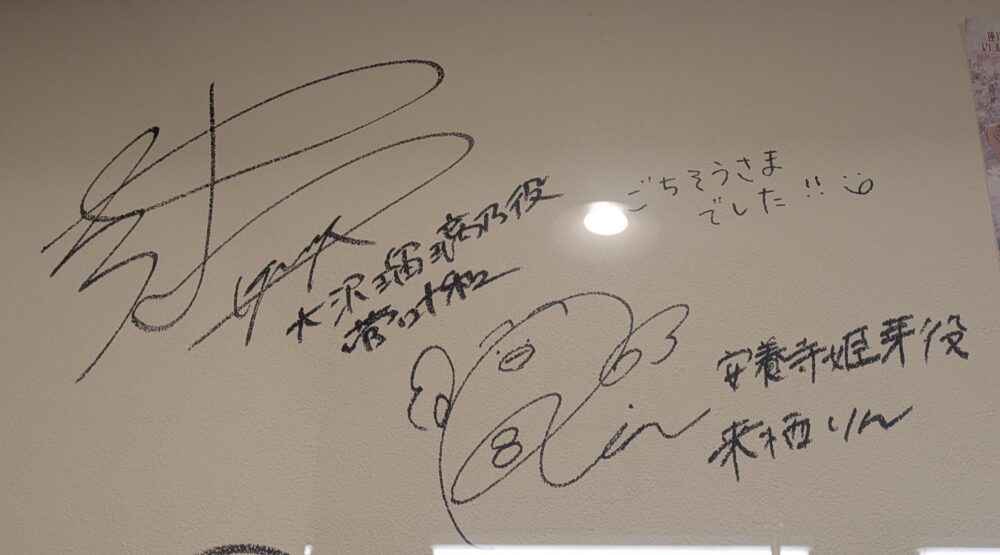 大沢瑠璃乃役
菅叶和
ごちそうさま
でした!!
安養寺姫芽役
来栖りん
Rin